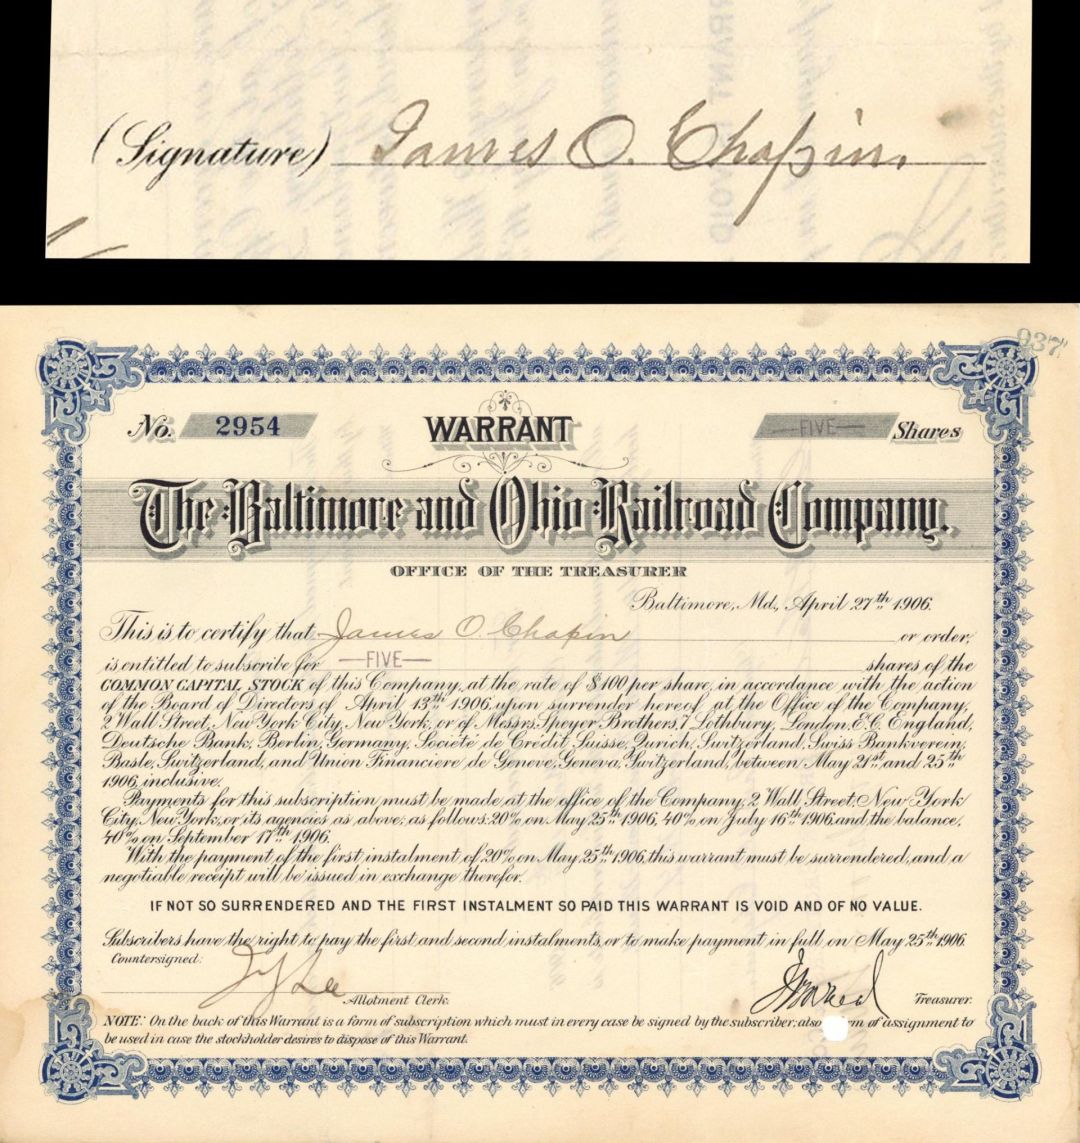 (Signature) James O. Chapin.
937
No. 2954 WARRANT FIVE Shares
The Baltimore and Ohio Railroad Company.
OFFICE OF THE TREASURER
Baltimore, Md., April 27th 1906.
This is to certify that James O. Chapin or order,
is entitled to subscribe for —FIVE— shares of the
COMMON CAPITAL STOCK of this Company, at the rate of $100 per share, in accordance with the action
of the Board of Directors of April 13th 1906, upon surrender hereof at the Office of the Company,
2 Wall Street, New York City, New York, or of Messrs. Speyer Brothers, 7 Lothbury, London, E.C. England,
Deutsche Bank, Berlin, Germany, Société de Crédit Suisse, Zurich, Switzerland, Swiss Bankverein,
Basle, Switzerland, and Union Financière de Genève, Geneva, Switzerland, between May 21st and 25th
1906, inclusive.
Payments for this subscription must be made at the office of the Company, 2 Wall Street, New York
City, New York, or its agencies as above, as follows: 20% on May 25th 1906, 40% on July 16th 1906, and the balance,
40% on September 17th 1906.
With the payment of the first instalment of 20% on May 25th 1906, this warrant must be surrendered, and a
negotiable receipt will be issued in exchange therefor.
IF NOT SO SURRENDERED AND THE FIRST INSTALMENT SO PAID THIS WARRANT IS VOID AND OF NO VALUE.
Subscribers have the right to pay the first and second instalments, or to make payment in full, on May 25th 1906.
Countersigned:
Lee Allotment Clerk. Treasurer.
NOTE: On the back of this Warrant is a form of subscription which must in every case be signed by the subscriber; also form of assignment to
be used in case the stockholder desires to dispose of this Warrant.